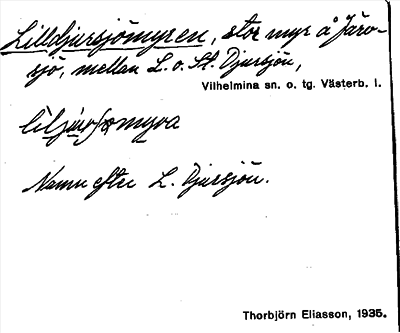 Lilldjursjömyren, stor myr å Järo-
sjö, mellan L. o. St. Djursjön,
Vilhelmina sn. o. tg. Västerb. l.
Namn efter L. Djursjön.
Thorbjörn Eliasson, 1935.